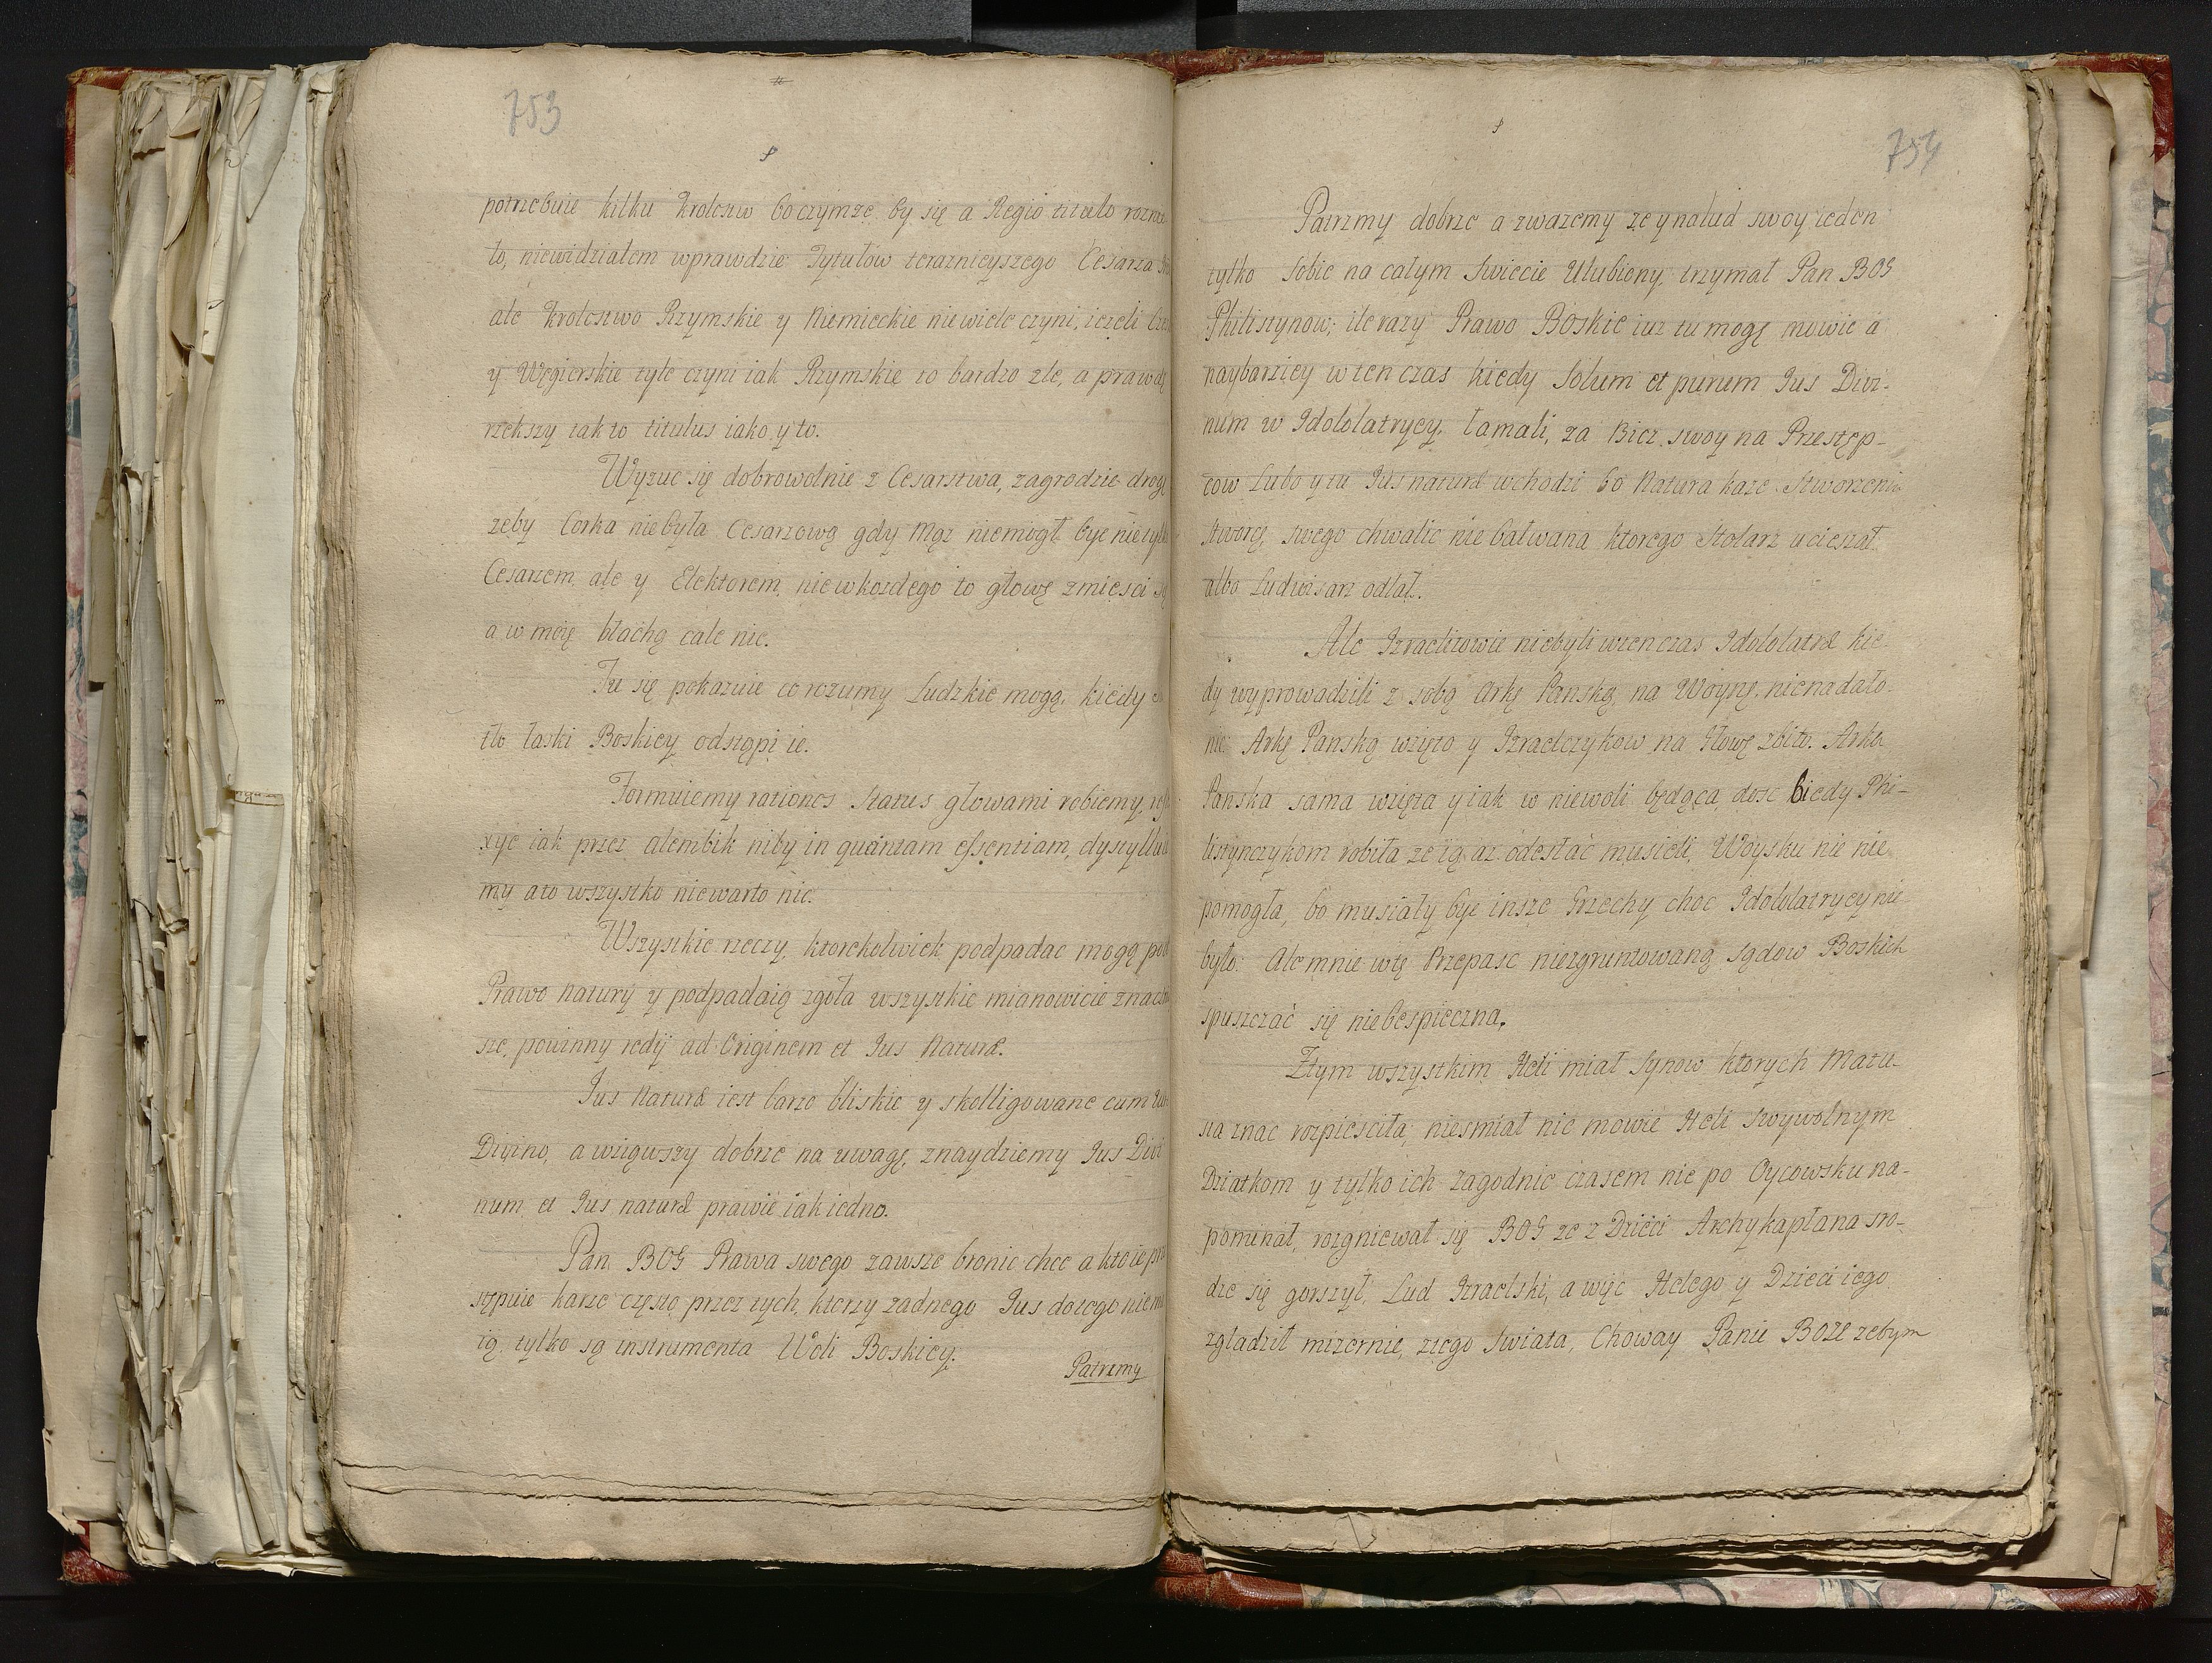 753
potrzebuie kilku krolestw bo czymze by się a Regio titulo rozni
ło, niewidziałem wprawdzie Tytułow teraznieyszego Cesarza
ale krolestwo Rzymskie y Niemieckie niewiele czyni, iezeli
y Węgierskie tyle czyni iak Rzymskie to bardzo zle, a prawdę
rzekszy tak to titulus iako y to.
Wyzuc się dobrowolnie z Cesarstwa, zagrodzic drogę
zeby Corka niebyła Cesarzową gdy Mąz niemogł byc nietylko
Cesarzem ale y Elektorem, niewkozdego to głowę zmiesci się
a w moię błachą cale nie.
Tu się pokazuie co rozumy Ludzkie mogą, kiedy
tło łaski Boskiey odstąpi ie.
Formuiemy rationes status głowami robiemy,
xye iak przez alembik niby in quintam essentiam, dystyllui
my a to wszystko niewarto nic.
Wszystkie rzeczy, ktorekolwiek podpadac mogą pod
Prawo natury y podpadaią zgoła wszystkie mianowicie znacz
sze, powinny iedy ad Originem et Jus Naturæ.
Jus Naturæ iest barzo bliskie y skolligowane cum Iu
Divino, a wziąwszy dobrze na uwagę, znaydziemy Jus Divi
num et Jus naturæ prawie iak iedno.
Pan BOG Prawa swego zawsze bronic chce a kto ie prze
stępuie karze często przez tych, ktorzy zadnego Jus dotego niema
ią, tylko są instrumenta Woli Boskiey.
Patrzmy
754
Patrzmy dobrze a zwazemy ze y na lud swoy ieden
tylko sobie na całym Swiecie Ulubiony, trzymał Pan BOG
Philistynow; ile razy Prawo Boskie iuz tu mogę mowic a
naybarziey w ten czas kiedy solum et purum Jus Divi-
num w Idololatryey, łamali, za Bicz swoy na Przestęp-
cow Lubo y tu Jus naturæ wchodzi bo Natura kaze Stworzeniu
Stworcę swego chwalic nie bałwana ktorego Stolarz uciesał
albo Ludwisarz odlał.
Ale Izraelitowie niebyli wtenczas Idololatræ kie-
dy wyprowadzili z sobą Arkę Panską na Woynę, nienadało-
nic. Arkę Panską wzięto y Izraelczykow na Głowę zbito. Arka
Panska sama wzięta y iak w niewoli będąca, dosc Biedy Phi-
listynczykom robiła ze ią az odesłac musieli, Woysku nic nie
pomogła, bo musiały byc insze Grzechy choc Idololatryey nie
było: Ale mnie w tę Przepasc niezgruntowaną Sądow Boskich
spuszczać się niebespieczna.
Ztym wszystkim Heli miał Synow ktorych Matu-
sia znac rozpiesciła; niesmiał nic mowic Heli Swywolnym
Dziatkom y tylko ich łagodnie czasem nie po Oycowsku na-
pominał, rozgniewał się BOG ze z Dzieci Archykapłana sro-
dze się gorszył, Lud Izraelski, a więc Helego y Dzieci iego
zgładził mizernie, ztego Swiata, Choway Panie BOZE zebym